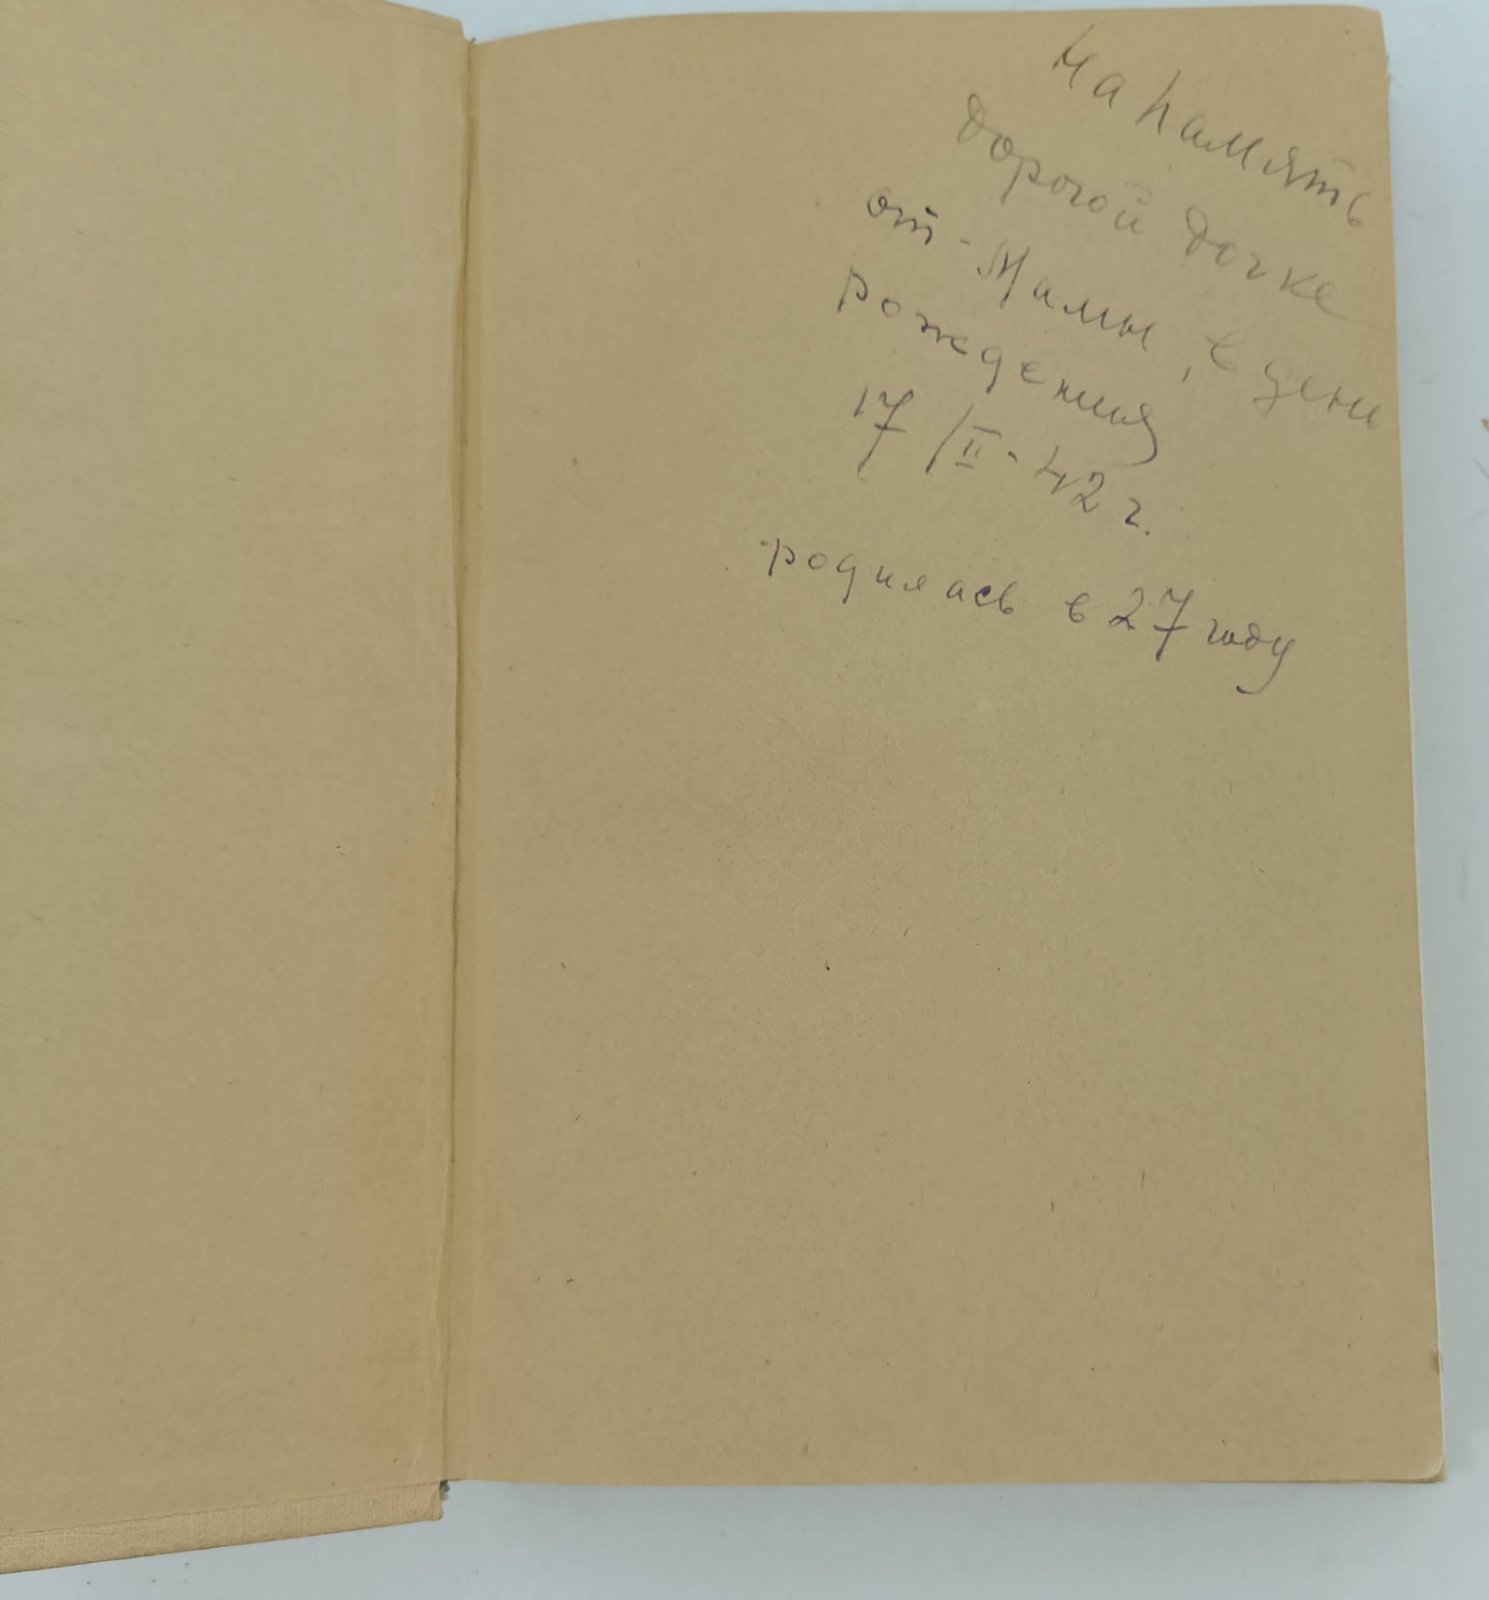 на память
дорогой дочке
от - Мамы, в день
рождения
17/II - 42 г.
родилась в 27 году